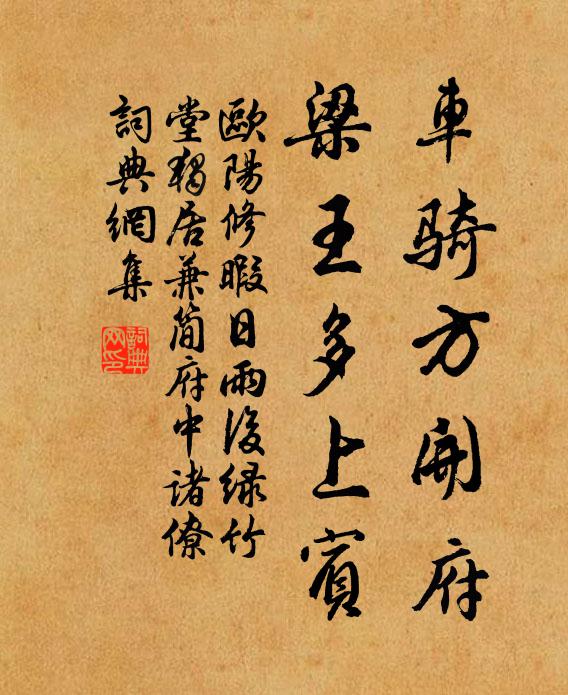 車騎方開府
梁王多上賓
歐陽修暇日雨後緑竹
堂獨居兼簡府中諸僚
詞典網集
詞典
网印